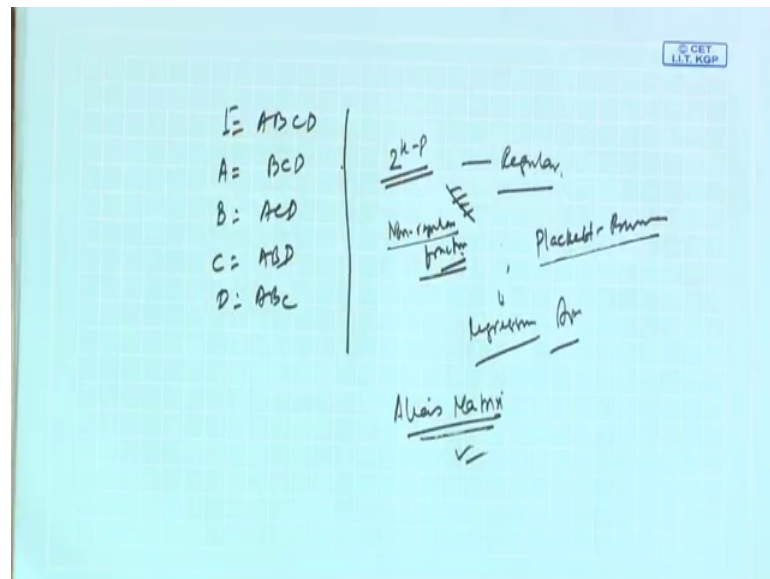 © CET
I.I.T. KGP
I = ABCD
A = BCD
B = ACD
C = ABD
D = ABC
2^{k-p} — Regular.
Non-regular
fraction
Plackett-Burman
Regression
Alias Matrix